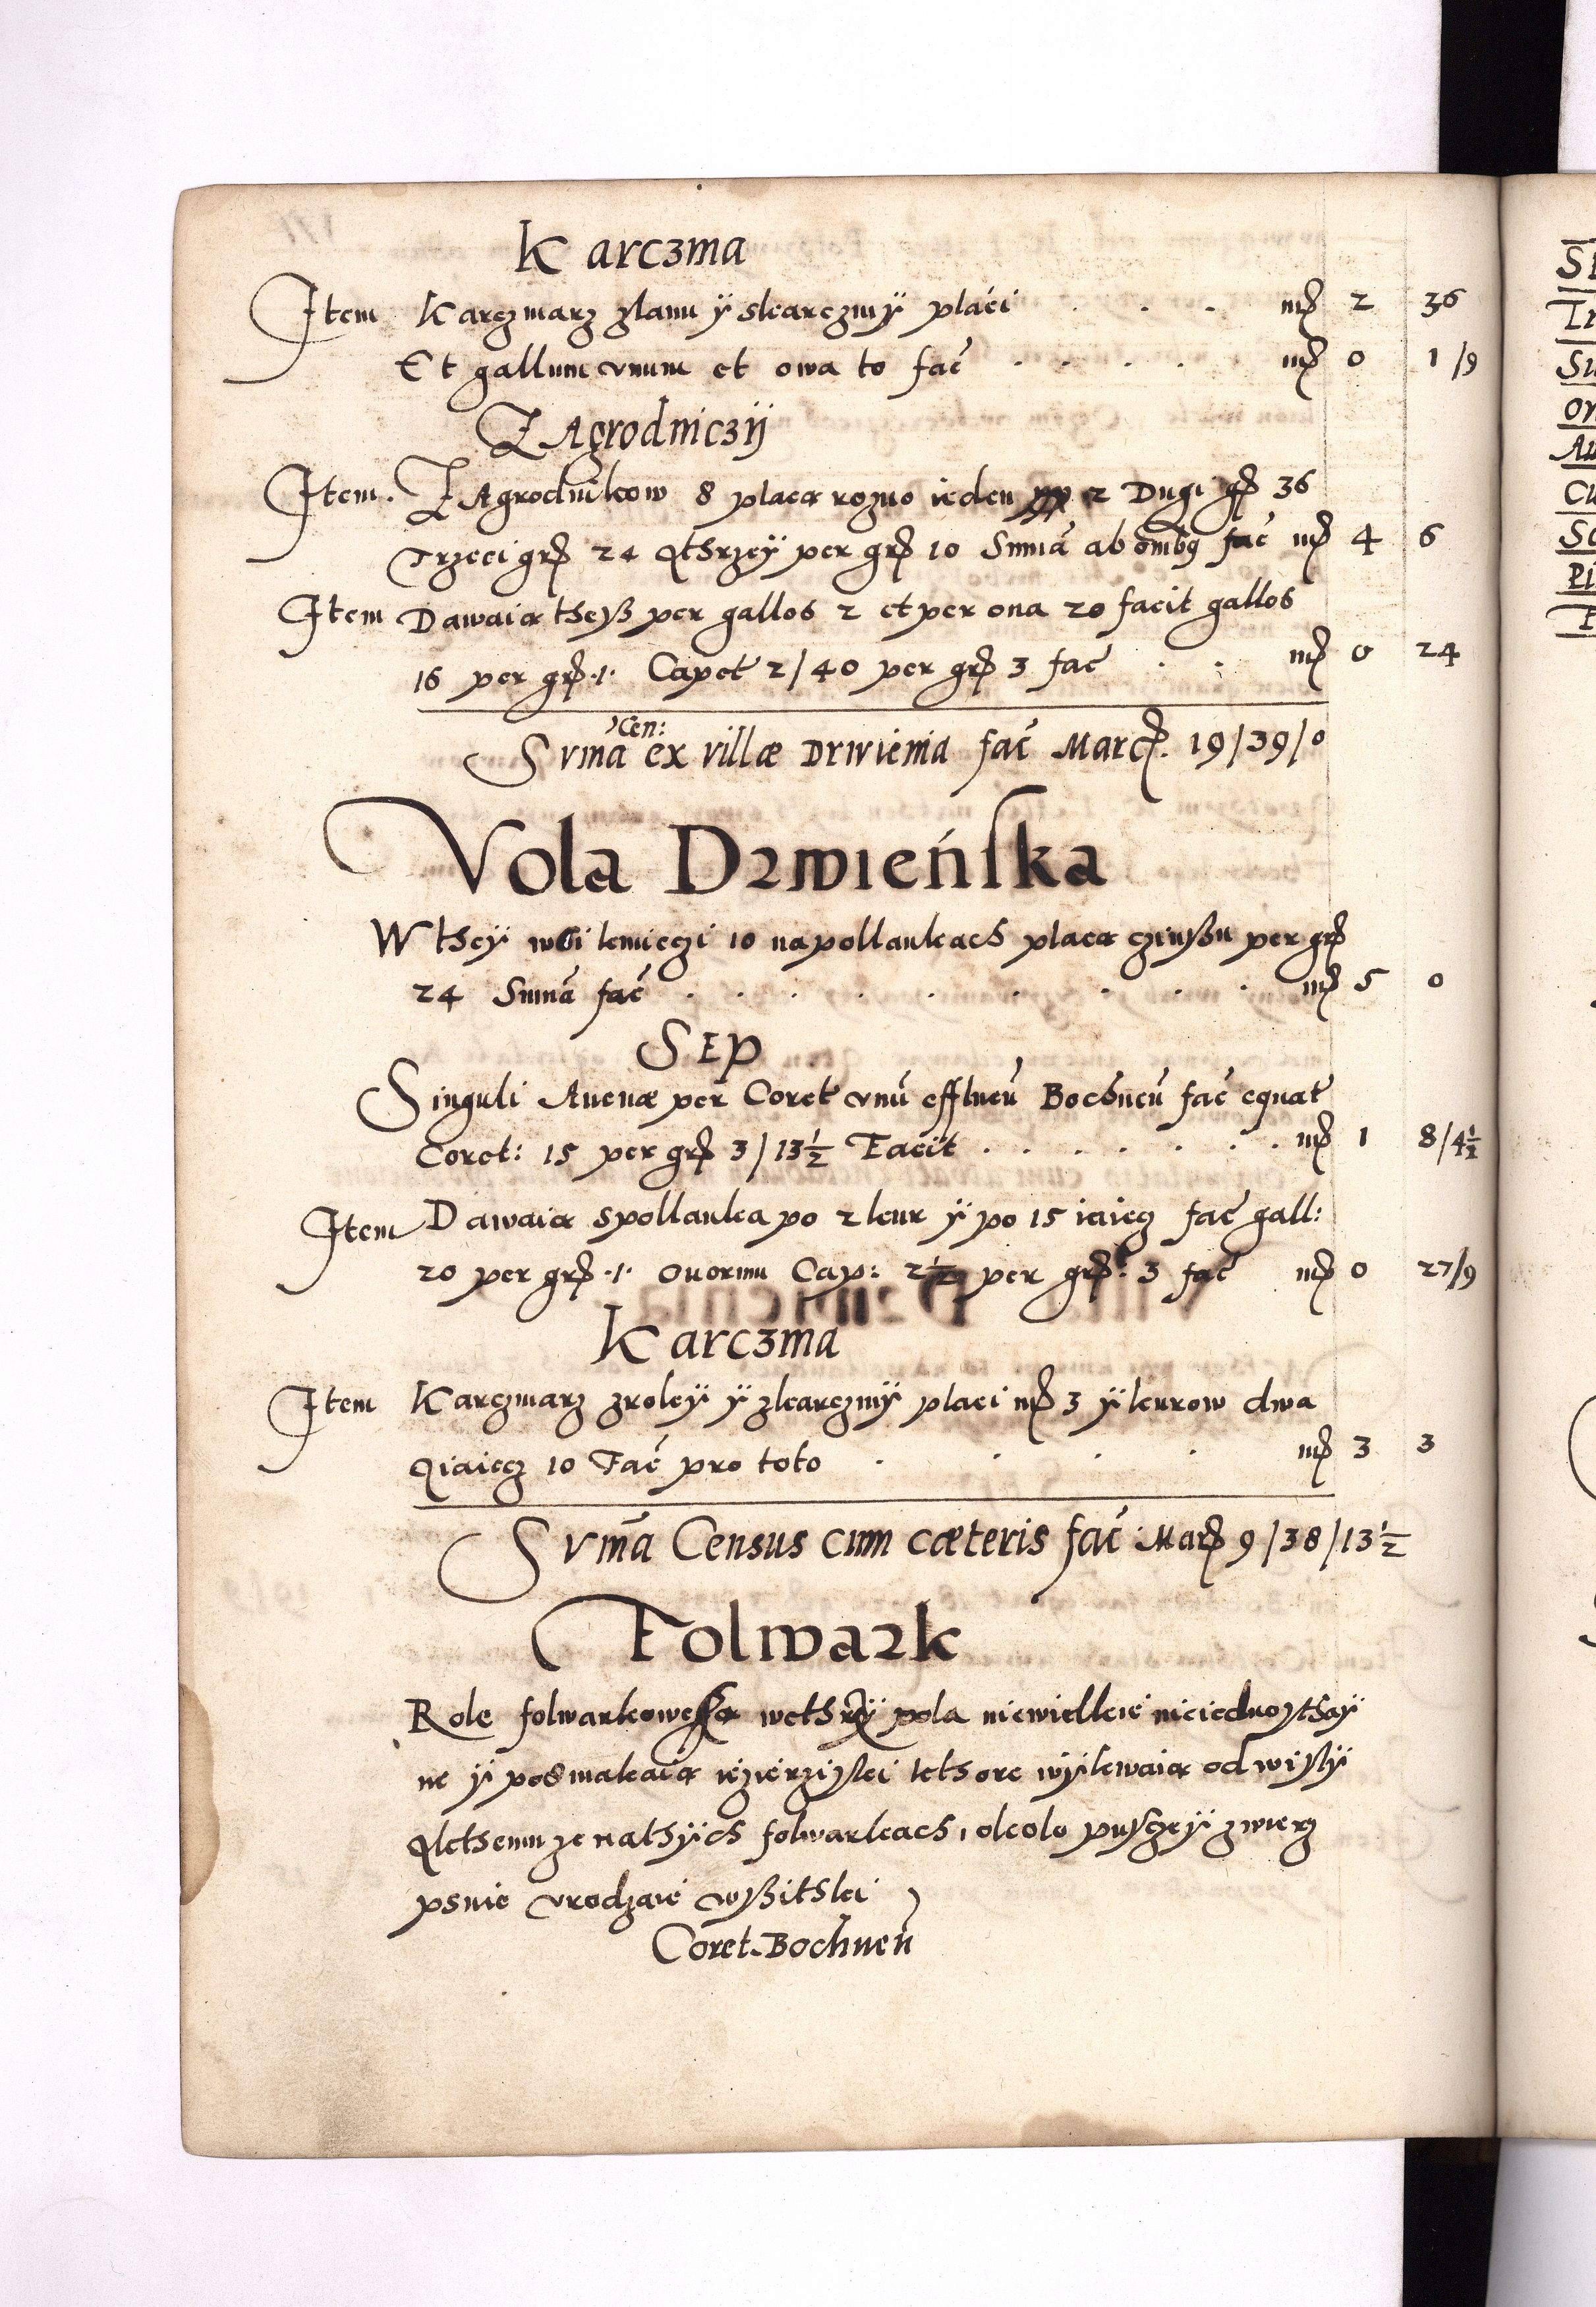 Karczma
Item Karczmarz zlanu ÿ skarczmÿ płaći . . . mr̃ 2 36
Et gallum vnum et owa to fać . . . . mr̃ 0 1/9
ZAgrodniczÿ
Item. ZAgrodnikow 8 placą rozno ieden 2 Dugi gr̃ 36
Trzeci gr̃ 24 per gr̃ 10 Sum̃a ab omĩbꝫ fać mr̃ 4 6
Item Dawaią theÿß per gallos 2 et per oua 20 facit gallos
16 per gr̃ .1. Capet 2/40 per gr̃ 3 fać . . mr̃ 0 24
Cen:
Svm̃a ex villæ Drwienia fać Marc̃. 19/39/0
Vola Drwieńſka
W theÿ wsi kmieczi 10 na pollankach placą czinßu per gr̃
24 Sum̃a fać . . . . . . . . mr̃ 5 0
SEP
Singuli Auenæ per Coret vnũ Bochneñ fać equat
Coret: 15 per gr̃ 3/13½ Facit . . . . . . . mr̃ 1 8/4½
Item Dawaią spollanka po 2 kur ÿ po 15 iaiecz fać gall:
20 per gr̃ .1. ouorum Cap: 2½ per gr̃: 3 fać mr̃ 0 27/9
Karczma
Item Karczmarz zroleÿ ÿ zkarczmÿ placi mr̃ 3 ÿ kurow dwa
Qiaiecz 10 Fać pro toto . . . . mr̃ 3 3
Svm̃a Census cum cæteris fać Mar̃ 9/38/13½
Folwark
Role folwarkowe pola niewielkie nieiednoÿthaÿ
ne ÿ posmakaią iezierziſki kthore wÿlewaią od wiſłÿ
Qkthemu ze nathÿch folwarkach, okolo puſczeÿ zwierz
psuie vrodzaie wſzithki
Coret. Bochneñ